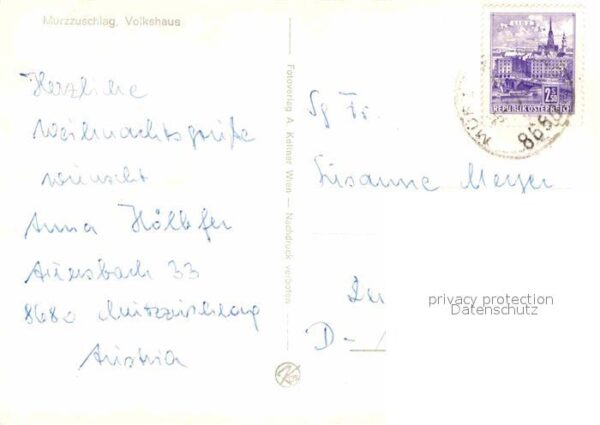 Mürzzuschlag, Volkshaus
Herzliche
Weihnachtsgrüße
wünscht
Anna
Auersbach 33
8680 Mürzzuschlag
Austria
Fotoverlag A. Kellner Wien — Nachdruck verboten
LINZ
2.50
REPUBLIK ÖSTERREICH
8680
Sg Fr.
Susanne Meyer
D-
privacy protection
Datenschutz